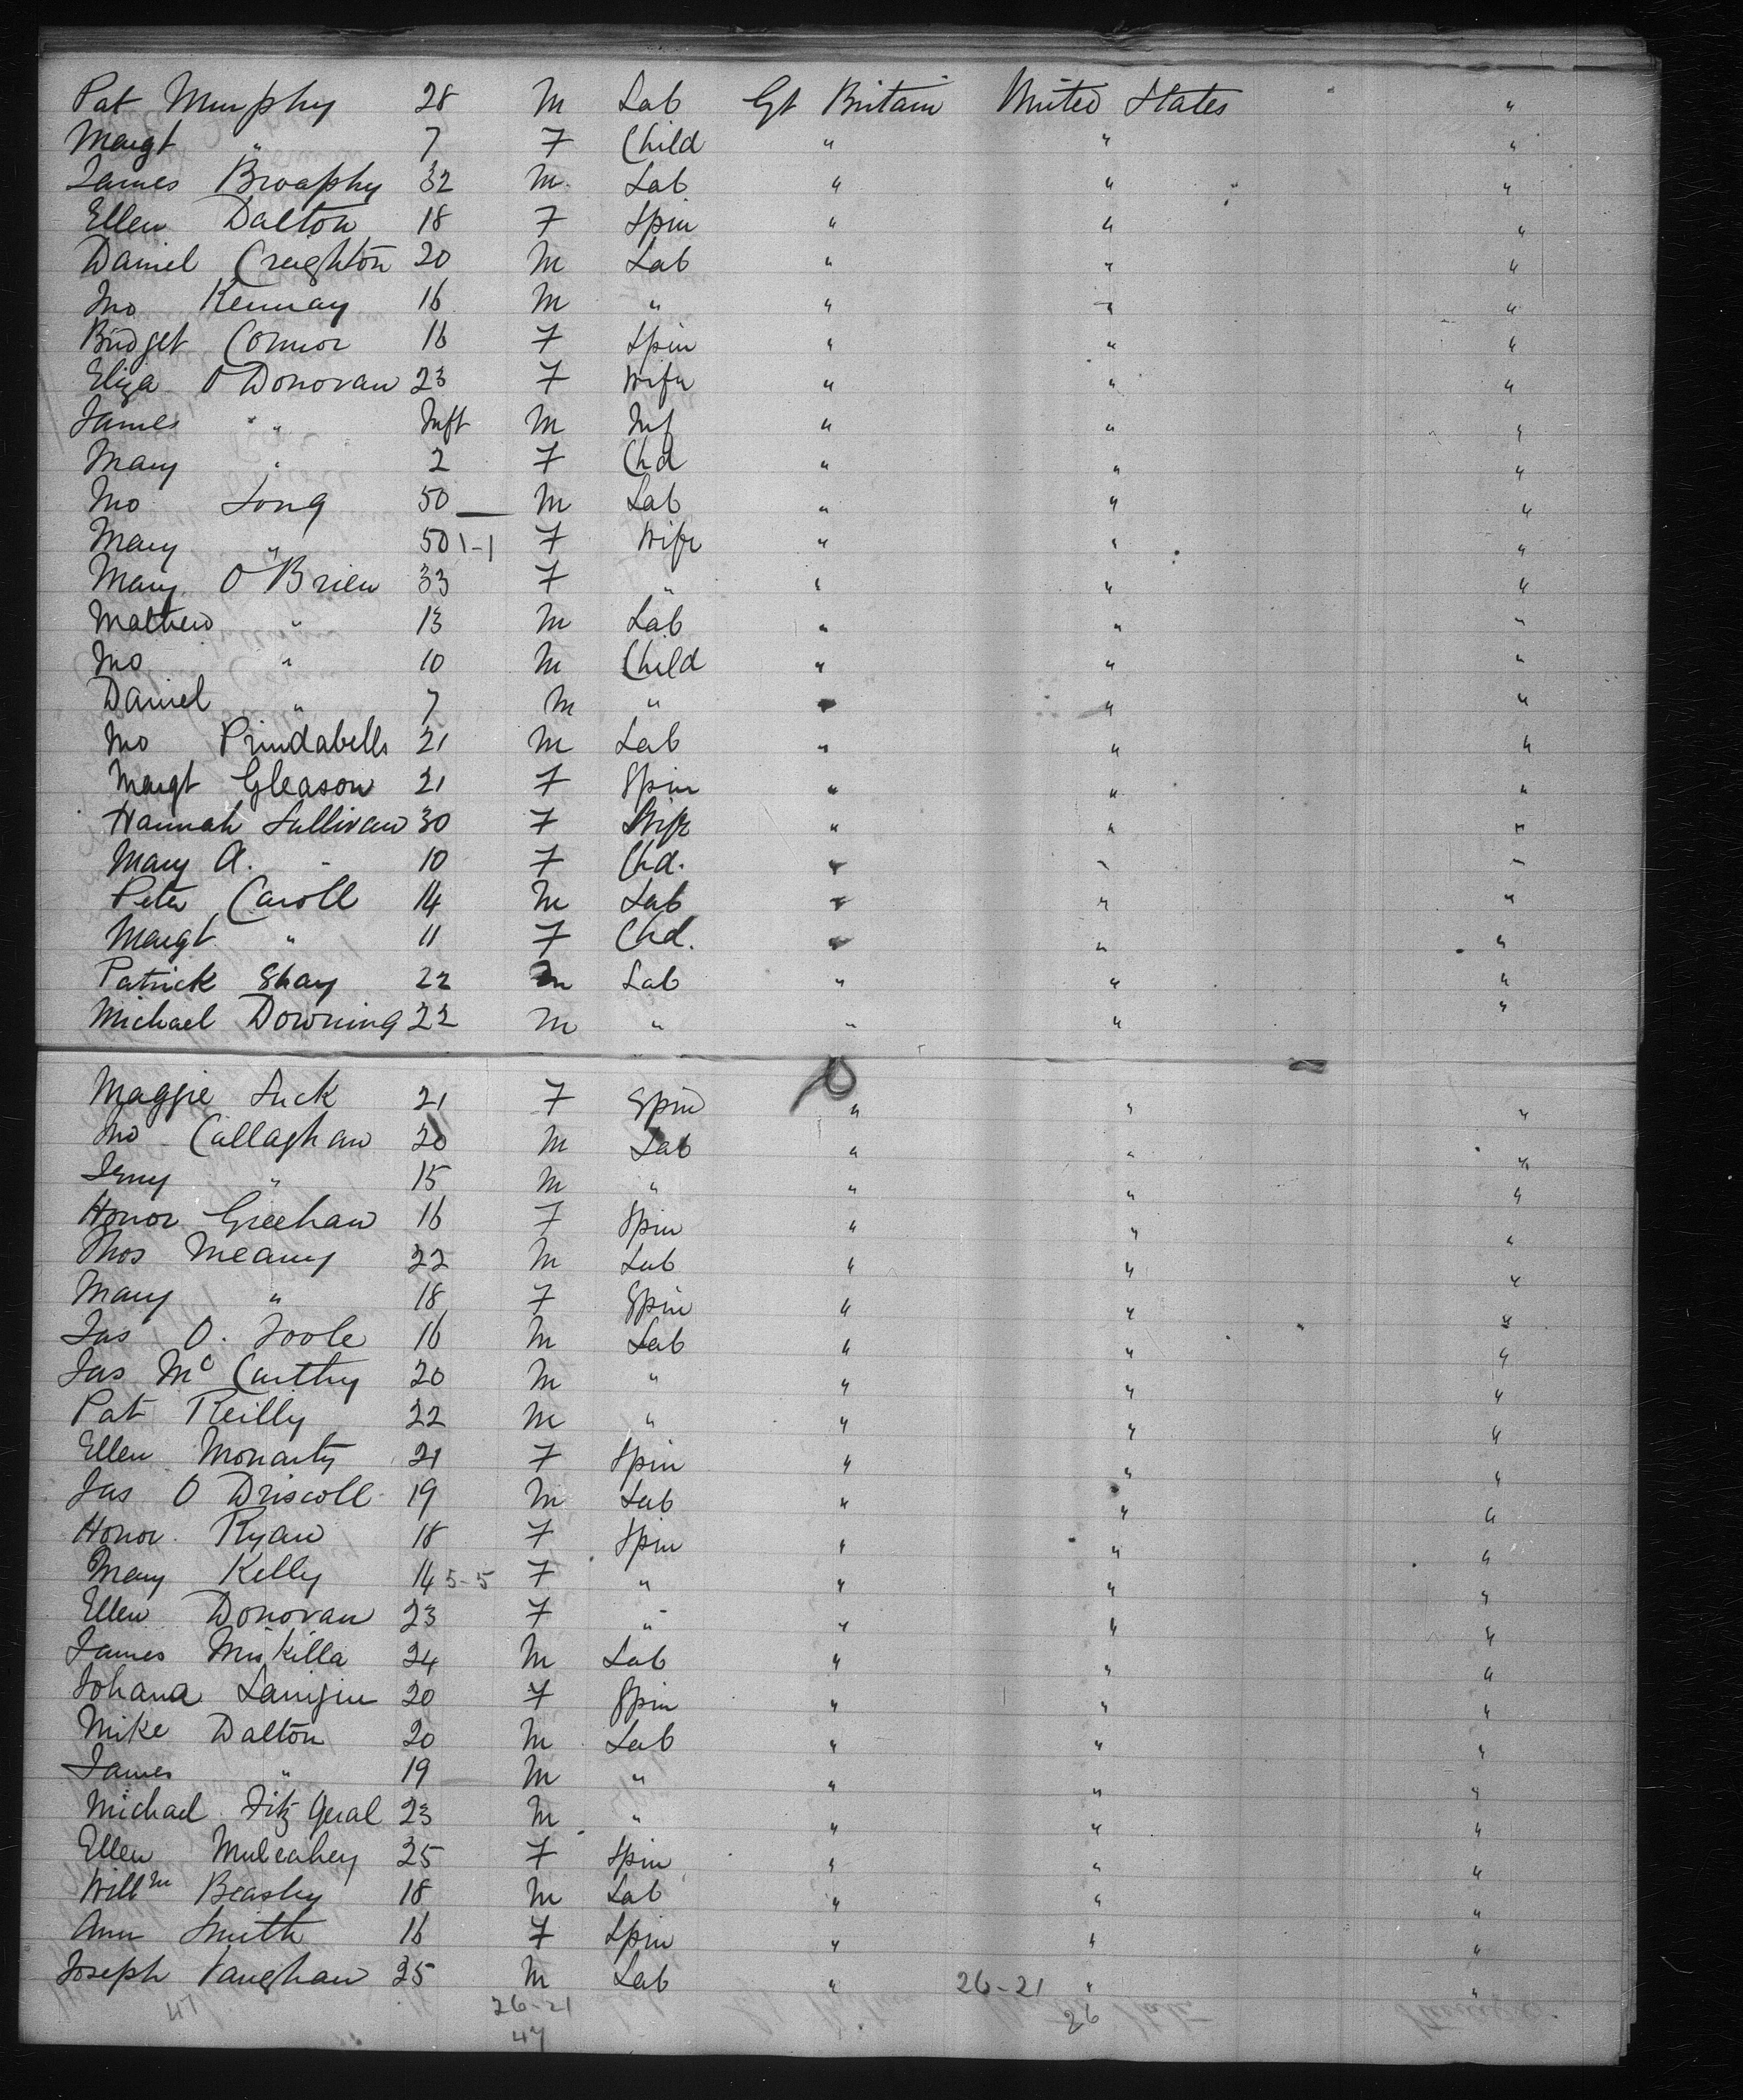 Pat Murphy 28 M Lab Gt Britain United States "
Margt " 7 F Child " " "
James Broaphy 32 M. Lab " " "
Ellen Dalton 18 F Spin " " "
Daniel Creighton 20 M Lab " " "
Jno Kenway 16 M " " " "
Bridget Connor 16 F Spin " " "
Eliza O Donovan 23 F Wife " " "
James " Inft M Inf " " "
Mary " 2 F Chd " " "
Jno Long 50 M Lab " " "
Mary " 50 1-1 F Wife " " "
Mary O Brien 33 F " " " "
Mathew " 13 M Lab " " "
Jno " 10 M Child " " "
Daniel " 7 M " " " "
Jno Prindabells 21 M Lab " " "
Margt Gleason 21 F Spin " " "
Hannah Sullivan 30 F Wife " " "
Mary A. " 10 F Chd. " " "
Peter Caroll 14 M Lab " " "
Margt " 11 F Chd. " " "
Patrick Shay 22 M Lab " " "
Michael Downing 22 M " " " "
Maggie Luck 21 F Spin " " "
Jno Callaghan 20 M Lab " " "
Jerry " 15 M " " " "
Honor Greehan 16 F Spin " " "
Thos Meany 22 M Lab " " "
Mary " 18 F Spin " " "
Jas O. Toole 16 M Lab " " "
Jas Mc Carthy 20 M " " " "
Pat Reilly 22 M " " " "
Ellen Moriarty 21 F Spin " " "
Jas O Driscoll 19 M Lab " " "
Honor Ryan 18 F Spin " " "
Mary Kelly 14 5-5 F " " " "
Ellen Donovan 23 F " " " "
James Miskilla 24 M Lab " " "
Johana Lanigin 20 F Spin " " "
Mike Dalton 20 M Lab " " "
James " 19 M " " " "
Michael Fitz Geral 23 M " " " "
Ellen Mulcahey 25 F Spin " " "
Willm Beasley 18 M Lab " " "
Ann Smith 16 F Spin " " "
Joseph Vaughan 25 M Lab " 26-21 " "
47 26-21 26
47